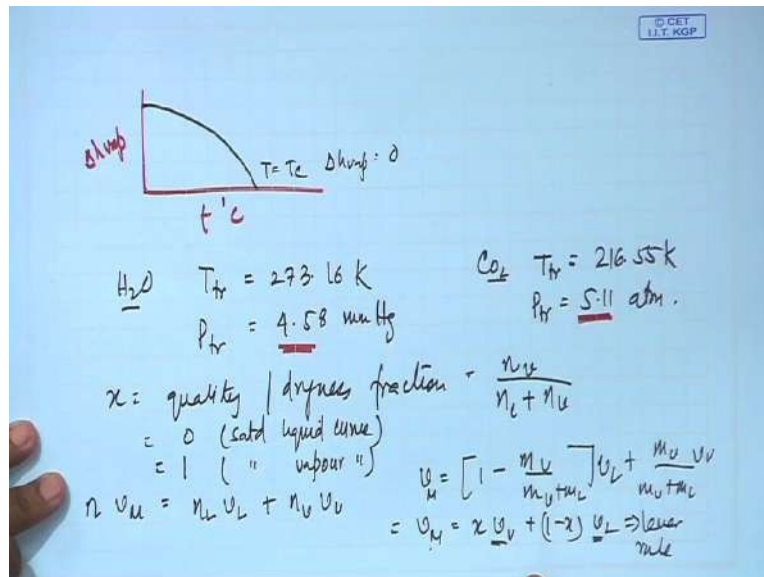 © CET
I.I.T. KGP
Δhvap
T = Tc Δhvap = 0
t °c
H₂O Ttr = 273.16 K
Ptr = 4.58 mm Hg
CO₂ Ttr = 216.55 K
Ptr = 5.11 atm.
x = quality / dryness fraction = nv / (nL + nv)
= 0 (satd liquid curve)
= 1 ( " vapour " )
n vM = nL vL + nv vv
vM = [1 - mv / (mv + mL)] vL + mv vv / (mv + mL)
= vM = x vv + (1-x) vL ⇒ lever
rule